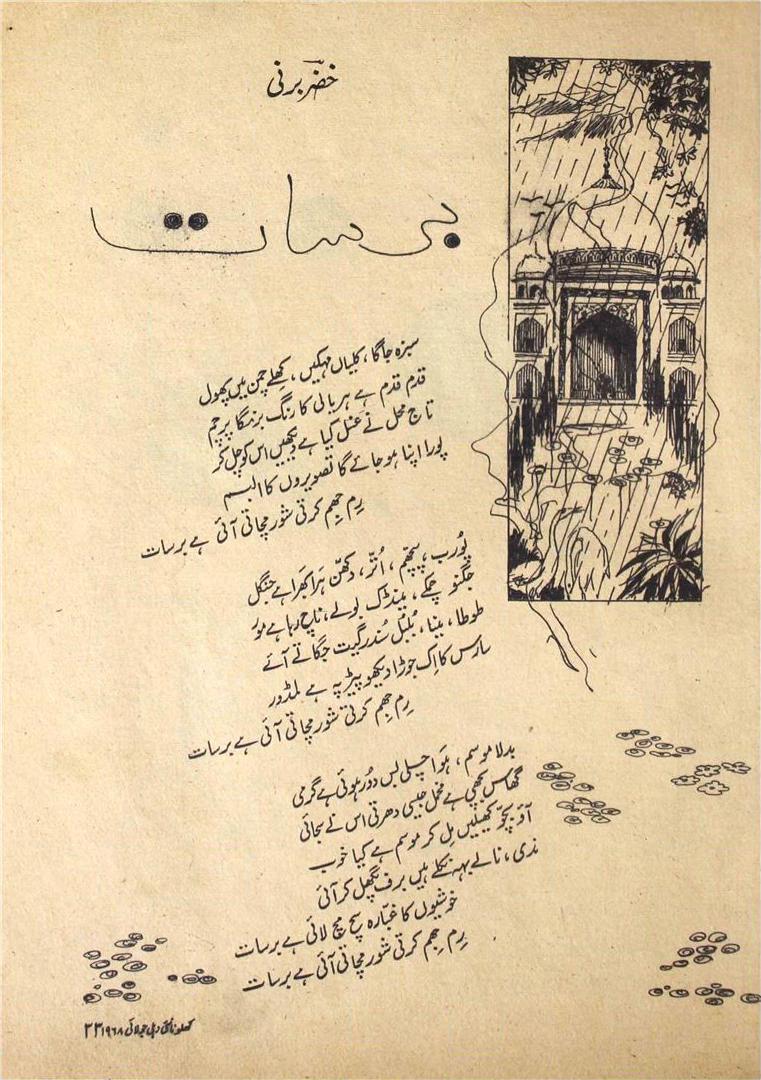 خضر برنی
برسات
سبزہ جاگا، کلیاں مہکیں، کھلے چمن میں پھول
قدم قدم ہے ہریالی کا رنگ برنگا پرچم
تاج محل نے غسل کیا ہے دیکھیں اس کو چل کر
پورا اپنا ہو جائے گا تصویروں کا البم
رِم جھم کرتی شور مچاتی آئی ہے برسات
پُورب، پچھم، اُتّر، دکھن ہرا بھرا ہے جنگل
جگنو چمکے، مینڈک بولے، ناچ رہا ہے مور
طوطا، مینا، بُلبل سُندر گیت جگاتے آئے
سارس کا اِک جوڑا دیکھو پیڑ پہ ہے
رِم جھم کرتی شور مچاتی آئی ہے برسات
بدلا موسم، ہَوا چلی بس دُور ہوئی ہے گرمی
گھاس بچھی ہے مخمل جیسی دھرتی اس نے سجائی
آؤ بچّو کھیلیں مِل کر موسم ہے کیا خوب
ندی، نالے بہہ نکلے ہیں برف پگھل کر آئی
خوشیوں کا غبّارہ سچ مچ لائی ہے برسات
رِم جھم کرتی شور مچاتی آئی ہے برسات
کھلونا نئی دہلی جولائی ۱۹۶۸ ۳۳